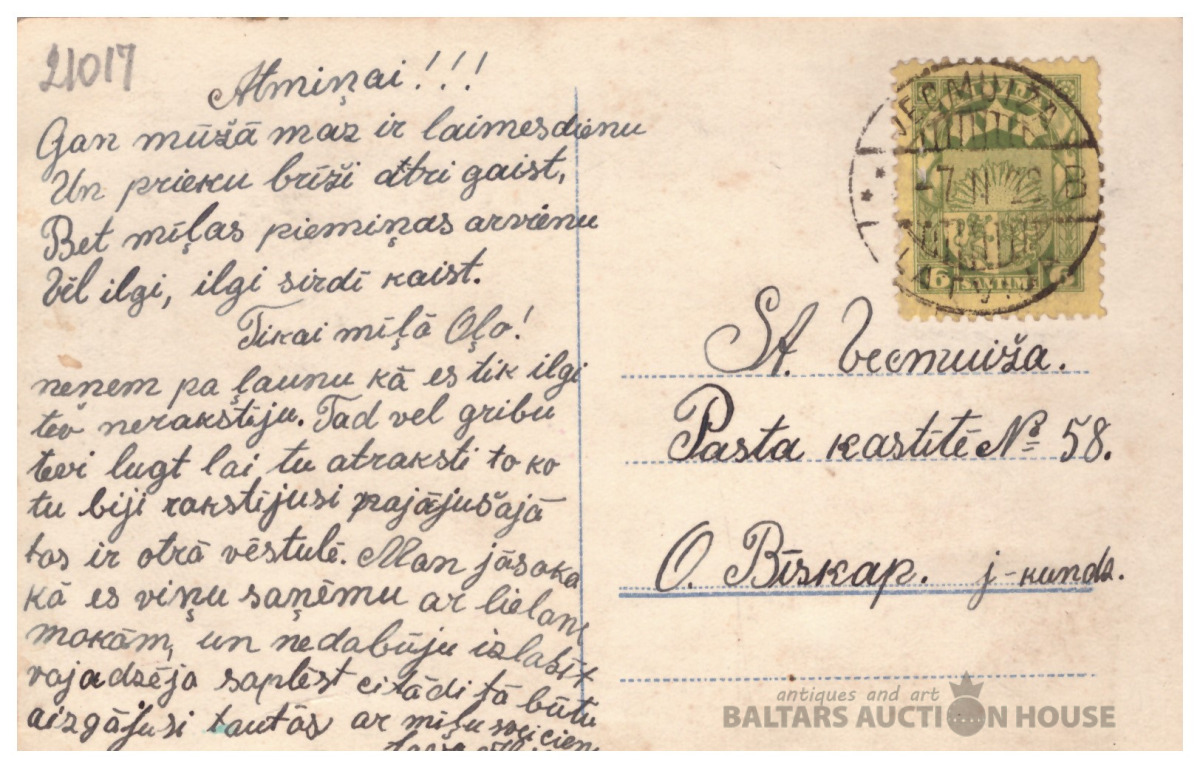 21017
Atmiņai!!!
Gan mūžā maz ir laimesdienu
Un prieku brīži ātri gaist,
Bet mīļas piemiņas arvienu
Vēl ilgi, ilgi sirdī kaist.
Tikai mīļā Oļo!
neņem pa ļaunu kā es tik ilgi
tev nerakstēju. Tad vel gribu
tevi lugt lai tu atraksti to ko
tu biji rakstējusi pajājušajā
tas ir otrā vēstulē. Man jāsaka
kā es viņu saņēmu ar lielām
mokām, un nedabūju izlasīt
vajadzēja saplēst citādi tā būtu
aizgājusi tautās ar mīļu
VECMUIŽA
LATVIJA
6 SANTIMI 6
St. Vecmuiža.
Pasta kastītē № 58.
O. Bīskap. j-kundz.
antiques and art
BALTARS AUCTION HOUSE